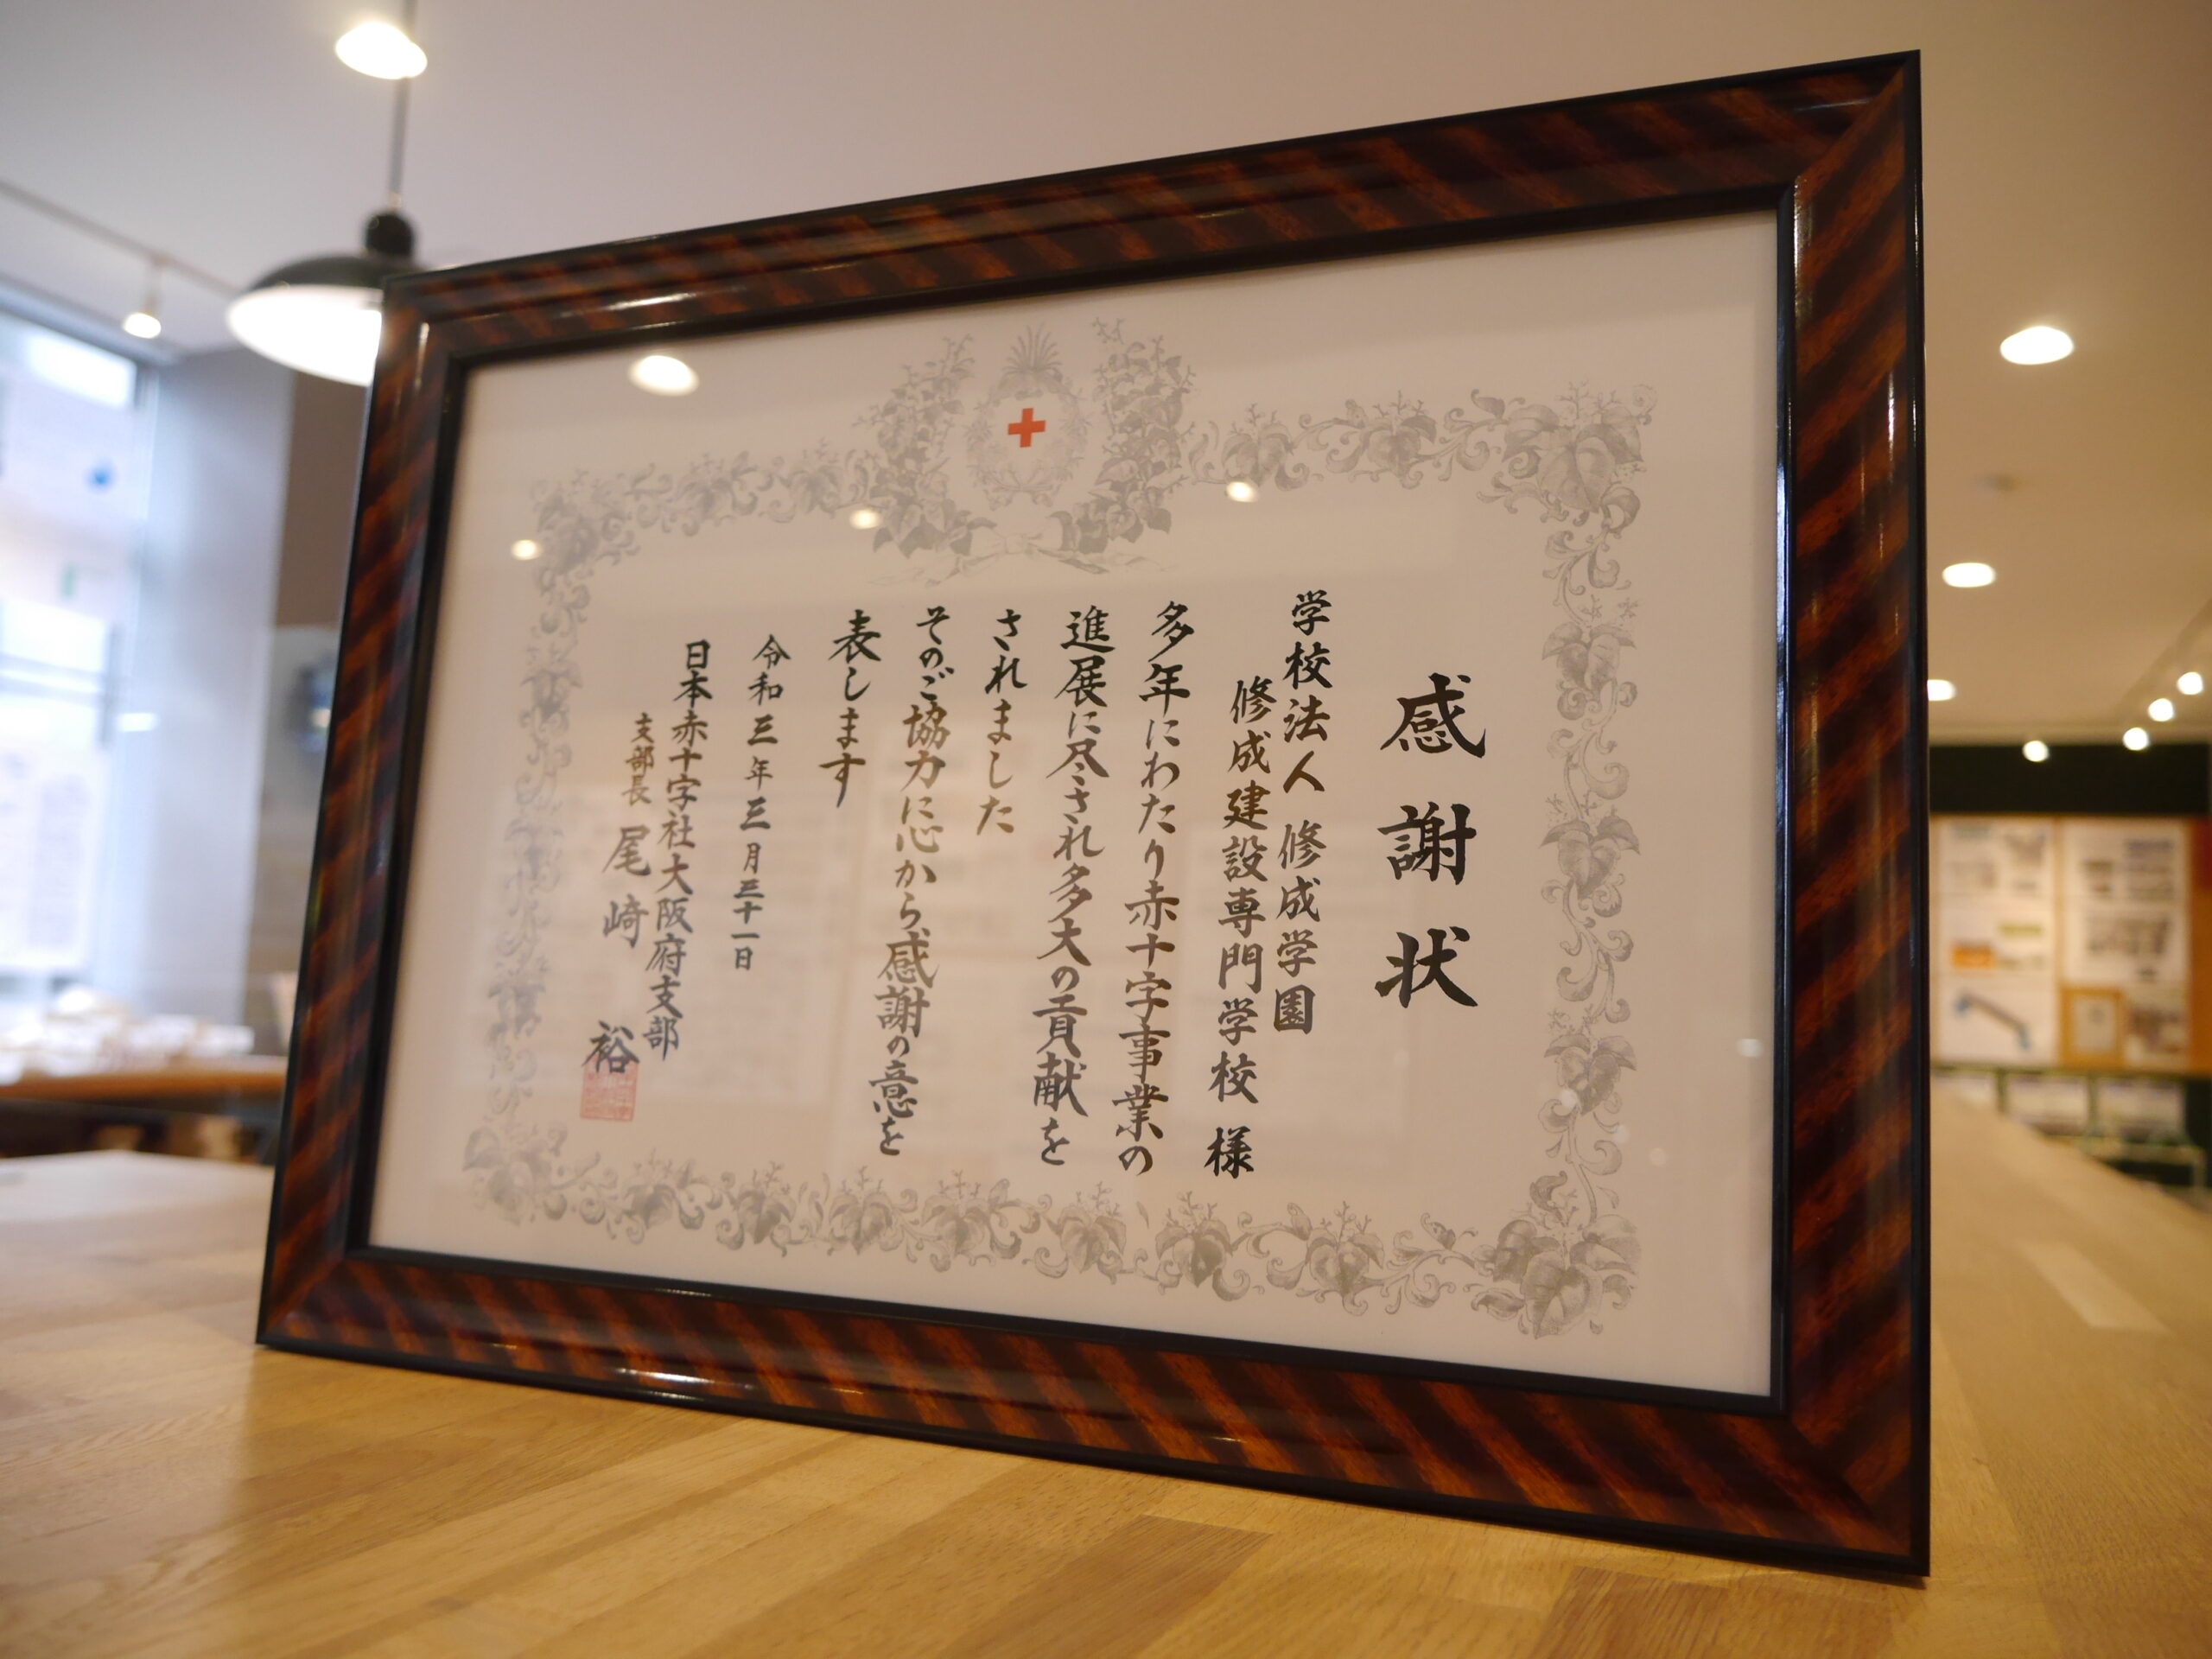 感謝状
学校法人 修成学園
修成建設専門学校 様
多年にわたり赤十字事業の
進展に尽され多大の貢献を
されました
そのご協力に心から感謝の意を
表します
令和三年三月三十一日
日本赤十字社大阪府支部
支部長 尾崎 裕